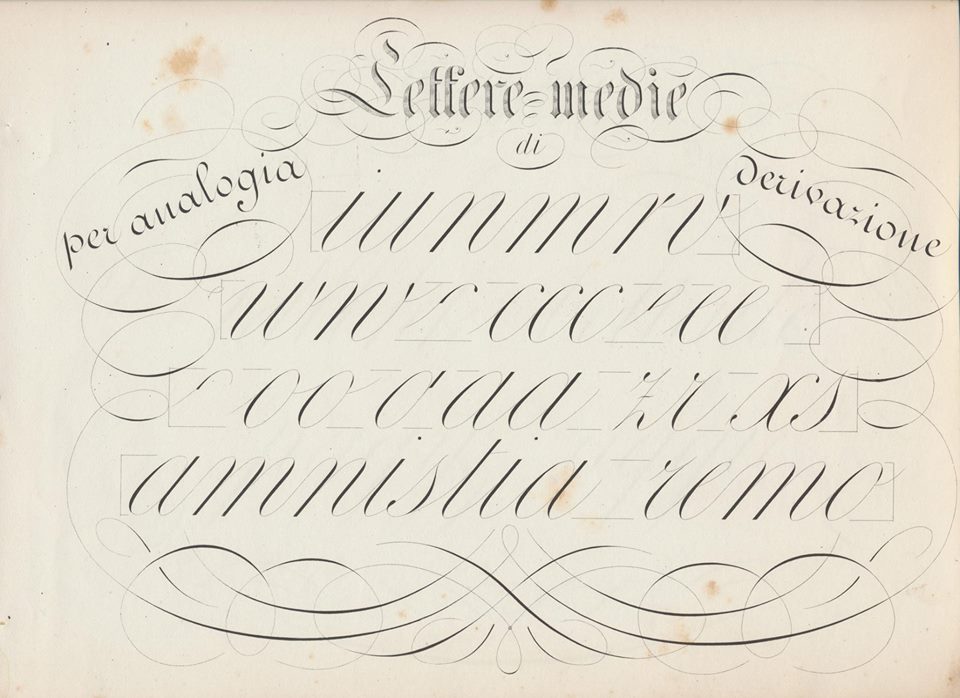 Lettere=medie
di
per analogia
derivazione
i u n m r v
w n z c c c c z e e
c o o c a a z r x s
amnistia remo